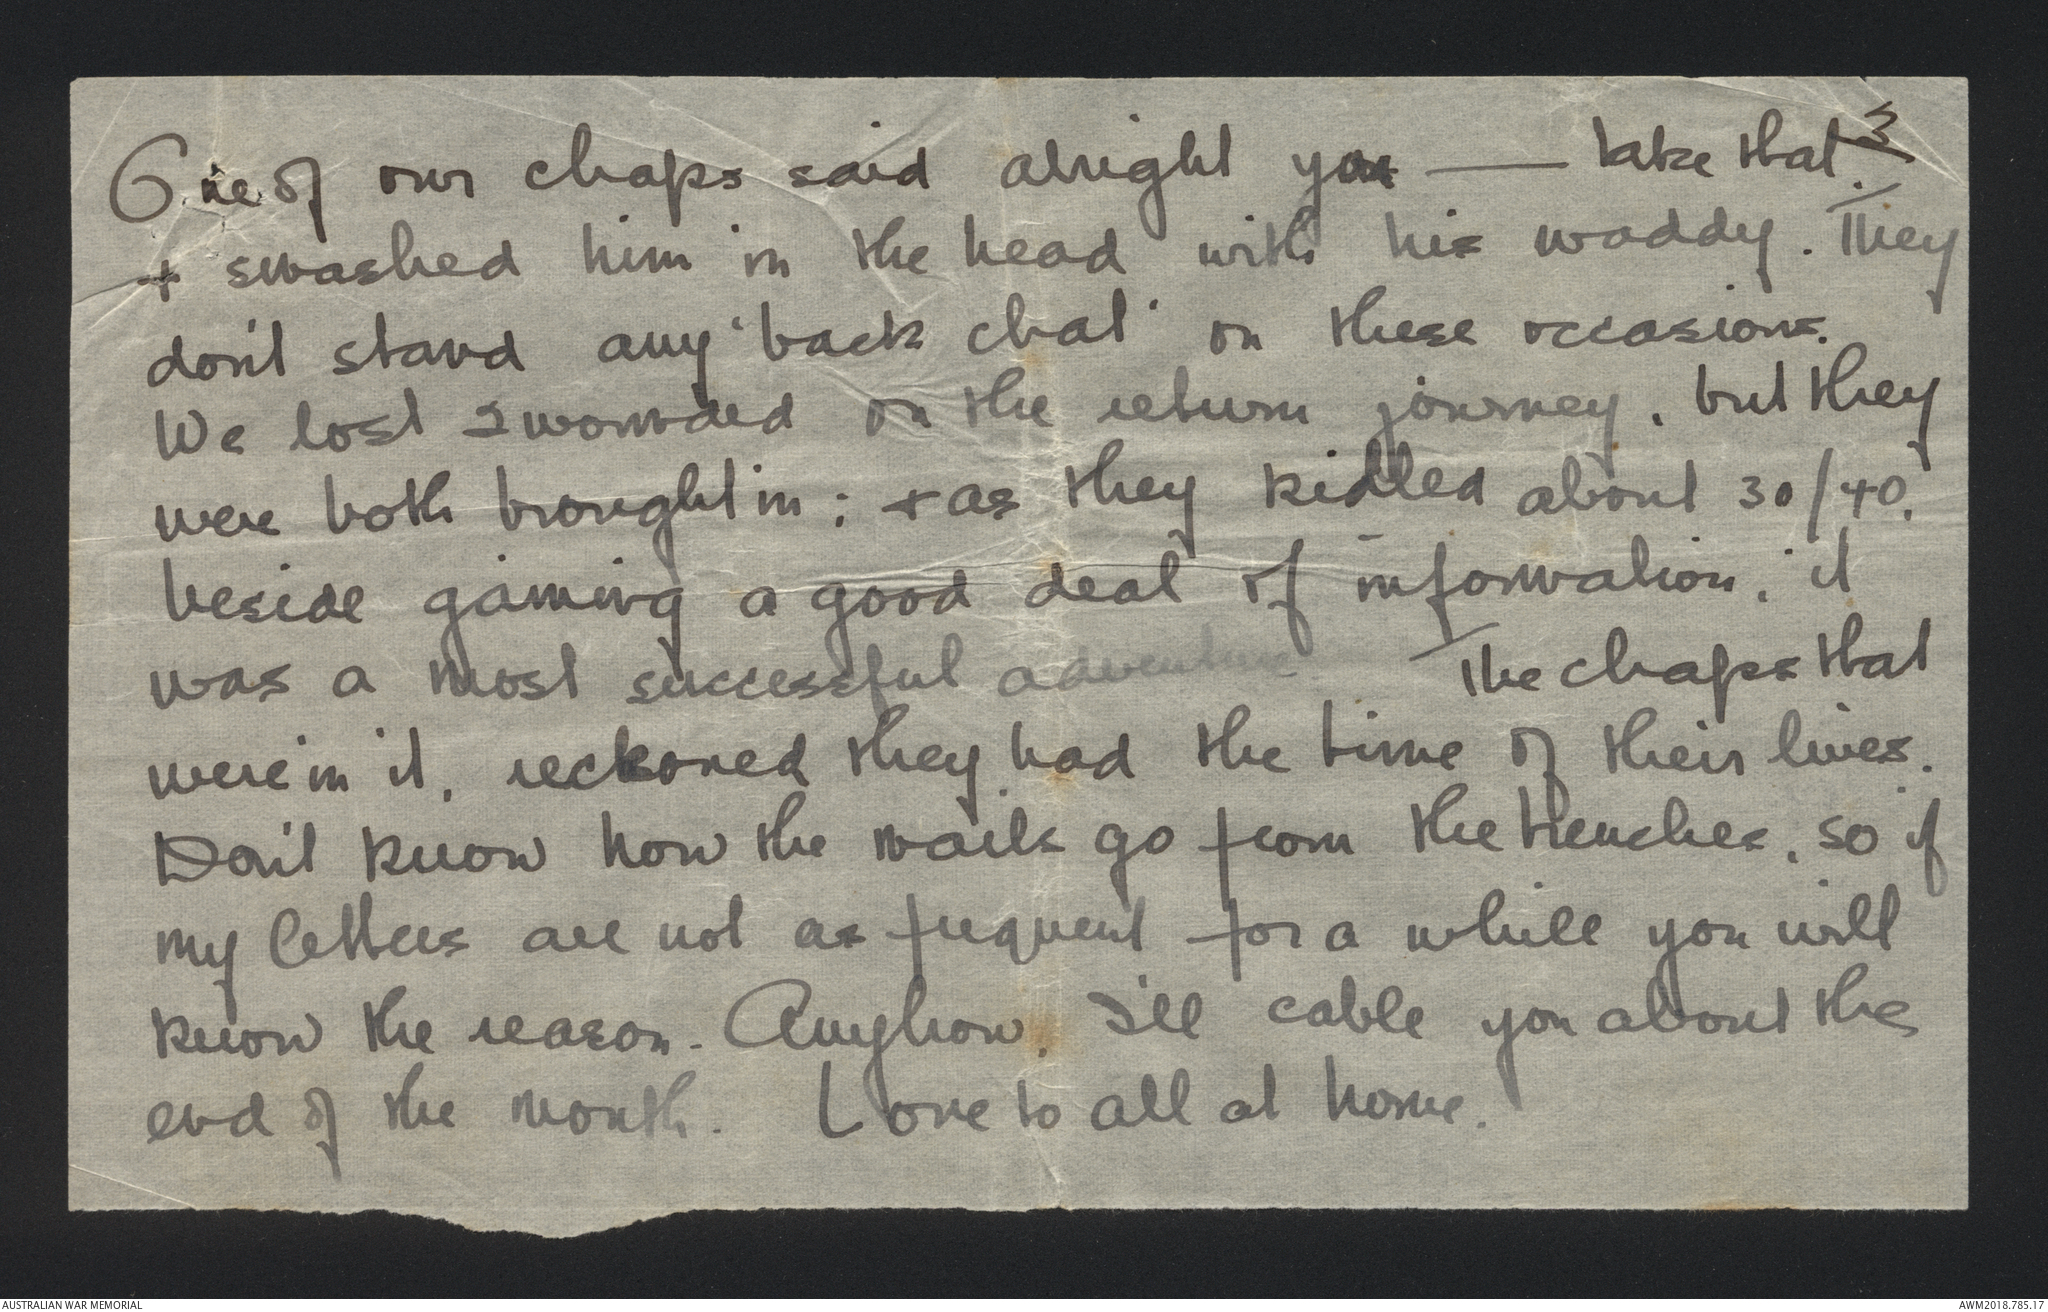 3
One of our chaps said alright you —— take that.
+ smashed him in the head with his waddy. They
don't stand any 'back chat' on these occasions.
We lost 2 wounded on the return journey, but they
were both brought in; + as they killed about 30/40,
beside gaining a good deal of information, it
was a most successful adventure. The chaps that
were in it, reckoned they had the time of their lives.
Don't know how the mails go from the trenches, so if
my letters are not as frequent for a while you will
know the reason. Anyhow, I'll cable you about the
end of the month. Love to all at home.
AUSTRALIAN WAR MEMORIAL
AWM2018.785.17